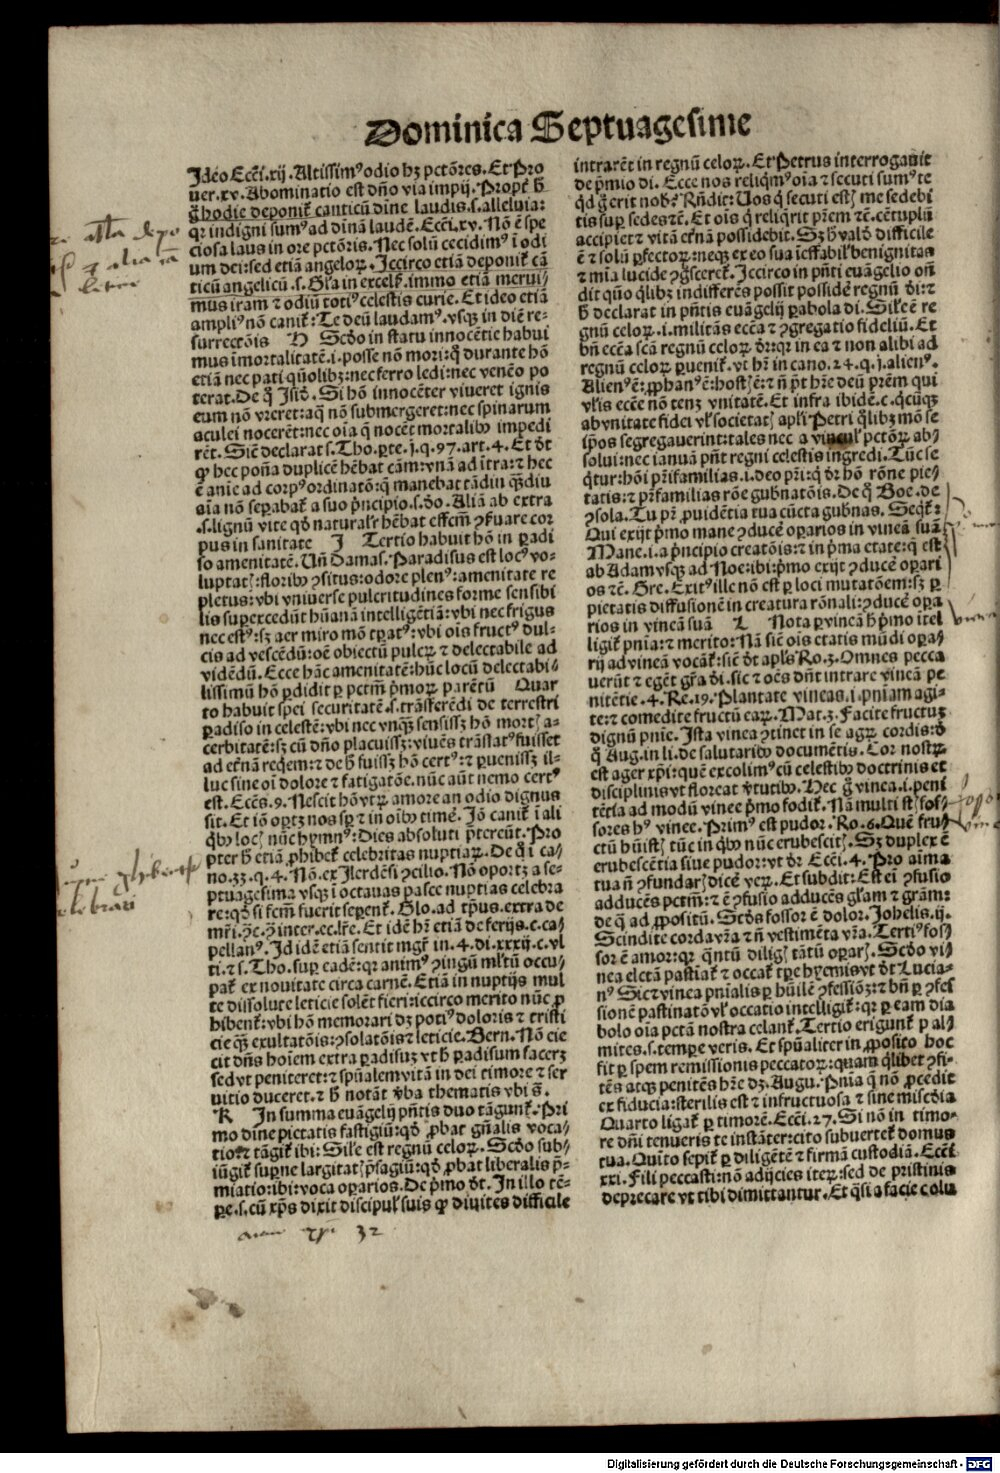 Dominica Septuagesime
Ideo Ecci. xij. Altissimꝰ odio hꝫ pctōres. Et Pro
uer. xv. Abominatio est dn̄o via impij. Propt̄ h̄
hodie deponit̄ canticū diīne laudis. s. alleluia:
qꝛ indigni sumꝰ ad diīnā laudē. Ecci. xv. Nō ē spe
ciosa laus in ore pctōris. Nec solū cecidimꝰ ī odi
um dei: sed etiā angeloꝝ. Iccirco etiā deponit̄ cā
ticū angelicū. s. Gl̄a in excelṡ. immo etiā merui⸗
mus iram ⁊ odiū totiꝰ celestis curie. Et ideo etiā
ampliꝰ nō canit̄: Te deū laudamꝰ. vsqꝫ in diē re⸗
surrectōis H Scd̄o in statu innocētie habui
mus īmortalitatē. i. posse nō mori: qꝛ durante hō
etiā nec pati qūolibꝫ: nec ferro ledi: nec venēo po
terat. De q̊ Isid̄. Si hō innocēter viueret ignis
eum nō vreret: aq̄ nō submergeret: nec spinarum
aculei nocerēt: nec oīa q̄ nocēt mortalibꝰ impedi
rēt. Sic̄ declarat s. Tho. ꝑte. j. q. 97. art. 4. Et dt̄
ꝙ hec pon̄a duplicē hēbat cām: vnā ad ītra: ⁊ hec
ē anīe ad corpꝰ ordinatō: q̄ manebat tādiu qꝫdiu
aīa nō sepabat̄ a suo pncipio. s. do. Aliā ab extra
.s. lignū vite qd̄ naturalr̄ hēbat effcm̄ ꝯseruare cor
pus in sanitate I Tertio habuit hō in padi
so amenitatē. Vn̄ Damas. Paradisus est locꝰ vo⸗
luptatꝭ: floribꝰ ꝯsitus: odore plenꝰ: amenitate re
pletus: vbi vniuerse pulcritudines forme sensibi
lis superexcedūt hūanā intelligētiā: vbi nec frigus
nec estꝰ: sꝫ aer miro mō tꝑatꝰ: vbi oīs fructꝰ dul⸗
cis ad vescēdū: oē obiectū pulcꝝ ⁊ delectabile ad
vidēdū. Ecce hāc amenitatē: hūc locū delectabi⸗
lissimū hō pdidit ꝑ pctm̄ pmoꝝ parētū Quar
to habuit spei securitatē. s. trāsferēdi de terrestri
padiso in celestē: vbi nec vnqꝫ sensissꝫ hō mortꝭ a⸗
cerbitatē: sꝫ cū dn̄o placuissꝫ: viuēs trāslatꝰ fuisset
ad etnā reqē: ⁊ de h̄ fuissꝫ hō certꝰ: ⁊ ꝑuenissꝫ il⸗
luc sine oī dolore ⁊ fatigatōe. nūc aūt nemo certꝰ
est. Eccēs. 9. Nescit hō vtꝝ amore an odio dignus
sit. Et iō oportꝫ nos sꝑ ⁊ in oībꝰ timē. Iō canit̄ ī ali
qbꝰ locꝭ nūc hymnꝰ: Dies absoluti ptereūt. Pro
pter h̄ etiā ꝓhibet̄ celebritas nuptiaꝝ. De q̊ ī ca⸗
no. 33. q. 4. Nō. ex Ilerdēsi ꝯcilio. Nō oportꝫ a se⸗
ptuagesima vsqꝫ ī octauas pasce nuptias celebra
re: qd̄ si fcm̄ fuerit sepent̄. Glo. ad tp̄us. extra de
Et idē hr̄ etiā de ferijs. c. ca⸗
pellanꝰ. Id idē etiā sentit mgr̄ in. 4. di. xxxij. c. vl
ti. ⁊ s. Tho. suꝑ eadē: qꝛ animꝰ ꝯiugū ml̄tū occu⸗
pat̄ ex nouitate circa carnē. Etiā in nuptijs mul
te dissolute leticie solēt fieri: iccirco merito nūc ꝓ
hibent̄: vbi hō memorari dꝫ potiꝰ doloris ⁊ tristi
cie qꝫ exultatōis: ꝯsolatōis ⁊ leticie. Bern. Nō eie
cit dn̄s hoīem extra padisuꝫ vt h̄ padisum facerꝫ
sed vt peniteret: ⁊ spūalem vitā in dei timore ⁊ ser
uitio duceret. ⁊ h̄ notāt ꝟba thematis vbi s̄.
K In summa euāgelij pn̄tis duo tāgunt̄. Pri
mo diīne pietatis fastigiū: qd̄ ꝓbat gn̄alis voca⸗
tio ⁊ tāgit̄ ibi: Sile est regnū celoꝝ. Scd̄o sub⸗
iūgit̄ supne largitatꝭ psagiū: qd̄ ꝓbat liberalis p̄⸗
miatio: ibi: voca opariōs. De pmo dt̄. In illo tē⸗
pe. s. cū xp̄s dixit discipul̄ suis ꝙ diuites difficile
intrarēt in regnū celoꝝ. Et Petrus interrogauit
de pmio di. Ecce nos reliqmꝰ oīa ⁊ secuti sumꝰ te
qd g̊ erit nob̄. Rn̄dit: Uos q̄ secuti estꝭ me sedebi
tis suꝑ sedes ⁊ē. Et oīs q̄ reliqrit p̄rem ⁊ē. cētuplū
accipiet ⁊ vitā etnā possidebit. Sꝫ h̄ vald̄ difficile
ē ⁊ solū ꝑfectoꝝ: neqꝫ ex eo sua īeffabil̄ benignitas
⁊ mīa lucide ꝯgꝰsceret̄. Iccirco in pn̄ti euāgelio osn̄
dit quō qlibꝫ indifferēs possit possidē regnū di: ⁊
h̄ declarat in pn̄tis euāgelij ꝑabola di. Sil̄e ē re
gnū celoꝝ. i. militās ecc̄a ⁊ ꝯgregatio fideliū. Et
bn̄ ecc̄a sc̄a regnū celoꝝ dr̄: qꝛ in ea ⁊ non alibi ad
regnū celoꝝ ꝑuenit̄. vt hr̄ in cano. 24. q. j. alienꝰ.
Alienꝰ ē: ꝓphanꝰ ē: hostꝭ ē: ⁊ n̄ pt hr̄e deū p̄rem qui
vl̄is ecc̄e nō tenꝫ vnitatē. Et infra ibidē. c. q̄cūqꝫ
ab vnitate fidei vl̄ societatꝭ apl̄i Petri qlibꝫ mō se
ip̄os segregauerint: tales nec a vincul̄ pctōꝝ ab⸗
solui: nec ianuā pn̄t regni celestis ingredi. Tūc se
qtur: hōi p̄rifamilias. i. deo pri: q dr̄ hō rōne pie⸗
tatis: ⁊ p̄rfamilias rōe gub̄natōis. De q̊ Boe. de
ꝯsola. Tu pr̄ ꝓuidētia tua cūcta gubnas. Seqt̄:
Qui exijt pmo mane ꝯducē oparios in vineā suā
Mane. i. a pncipio creatōis: ⁊ in pma etate: q̄ est
ab Adam vsqꝫ ad Noe: ibi: pmo exijt ꝯducē opari
os ⁊ē. Gre. Exitꝰ ille nō est ꝑ loci mutatōem: sꝫ ꝑ
pietatis diffusionē in creatura rōnali: ꝯducē opa
rios in vineā suā L Nota ꝑ vineā h̄ pmo ītel
ligit̄ pnīa: ⁊ merito: Nā sic̄ oīs etatis mūdi opa⸗
rij ad vineā vocāt̄: sic̄ dt̄ apl̄s Ro. 3. Omnes pecca
uerūt ⁊ egēt gr̄a di. sic ⁊ oēs dn̄t intrare vineā pe
nitētie. 4. Re. 19. Plantate vineas. i. pniam agi⸗
te: ⁊ comedite fructū eaꝝ. Mat. 3. Facite fructuꝫ
dignū pn̄ie. Ista vinea ꝯtinet in se agꝝ cordis: d̄
q̊ Aug. in li. de salutaribꝰ documētis. Cor nostꝝ
est ager xp̄i: quē excolimꝰ cū celestibꝰ doctrinis et
disciplinis vt floreat v̄tutibꝰ. Hec g̊ vinea. i. peni
tētia ad modū vinee pmo fodit̄. Nā multi st̄ fos⸗
sores hꝰ vinee. Primꝰ est pudor. Ro. 6. Quē fru⸗
ctū huistꝭ tūc in qbꝰ nūc erubescitꝭ. Sꝫ duplex ē
erubescētia siue pudor: vt dr̄ Ecci. 4. Pro aīma
tua n̄ ꝯfundarꝭ dicē veꝝ. Et subdit: Est ei ꝯfusio
adducēs pctm̄: ⁊ ē ꝯfusio adducēs gl̄am ⁊ gram̄:
de q̄ ad ꝓpositū. Scd̄s fossor ē dolor. Iohelis. ij.
Scindite corda vr̄a ⁊ n̄ vestimēta vr̄a. Tertiꝰ fos⸗
sor ē amor: qꝛ qntū diligꝭ tātū oparꝭ. Scd̄o vi⸗
nea electā pastīat̄ ⁊ occat̄ tp̄e hyemis vt dt̄ Lucia⸗
nꝰ Sic ⁊ vinea pn̄ialis ꝑ hūilē ꝯfessiōꝫ: ⁊ bn̄ ꝑ ꝯfes
sionē pastinatō vl̄ occatio intelligit̄: qꝛ ꝑ eam dia
bolo oīa pctā nostra celant̄. Tertio erigunt̄ pal⸗
mites. s. tempe veris. Et spūaliter in ꝓposito hoc
fit ꝑ spem remissionis peccatoꝝ: quam qlibet ꝯfi⸗
tēs atqꝫ penitēs hr̄e dꝫ. Augu. Pnīa q̄ nō ꝓcedit
ex fiducia: sterilis est ⁊ infructuosa ⁊ sine misc̄dia
Quarto ligat̄ ꝑ timorē. Ecci. 27. Si nō in timo⸗
re dn̄i tenueris te instāter: cito subuertet̄ domus
tua. Quīto sepit̄ ꝑ diligētē ⁊ firmā custodiā. Ecci.
xxi. Fili peccasti: nō adijcies iteꝝ: sed de pristinis
deprecare vt tibi dimittantur. Et qsi a facie colu
32
Digitalisierung gefördert durch die Deutsche Forschungsgemeinschaft - DFG